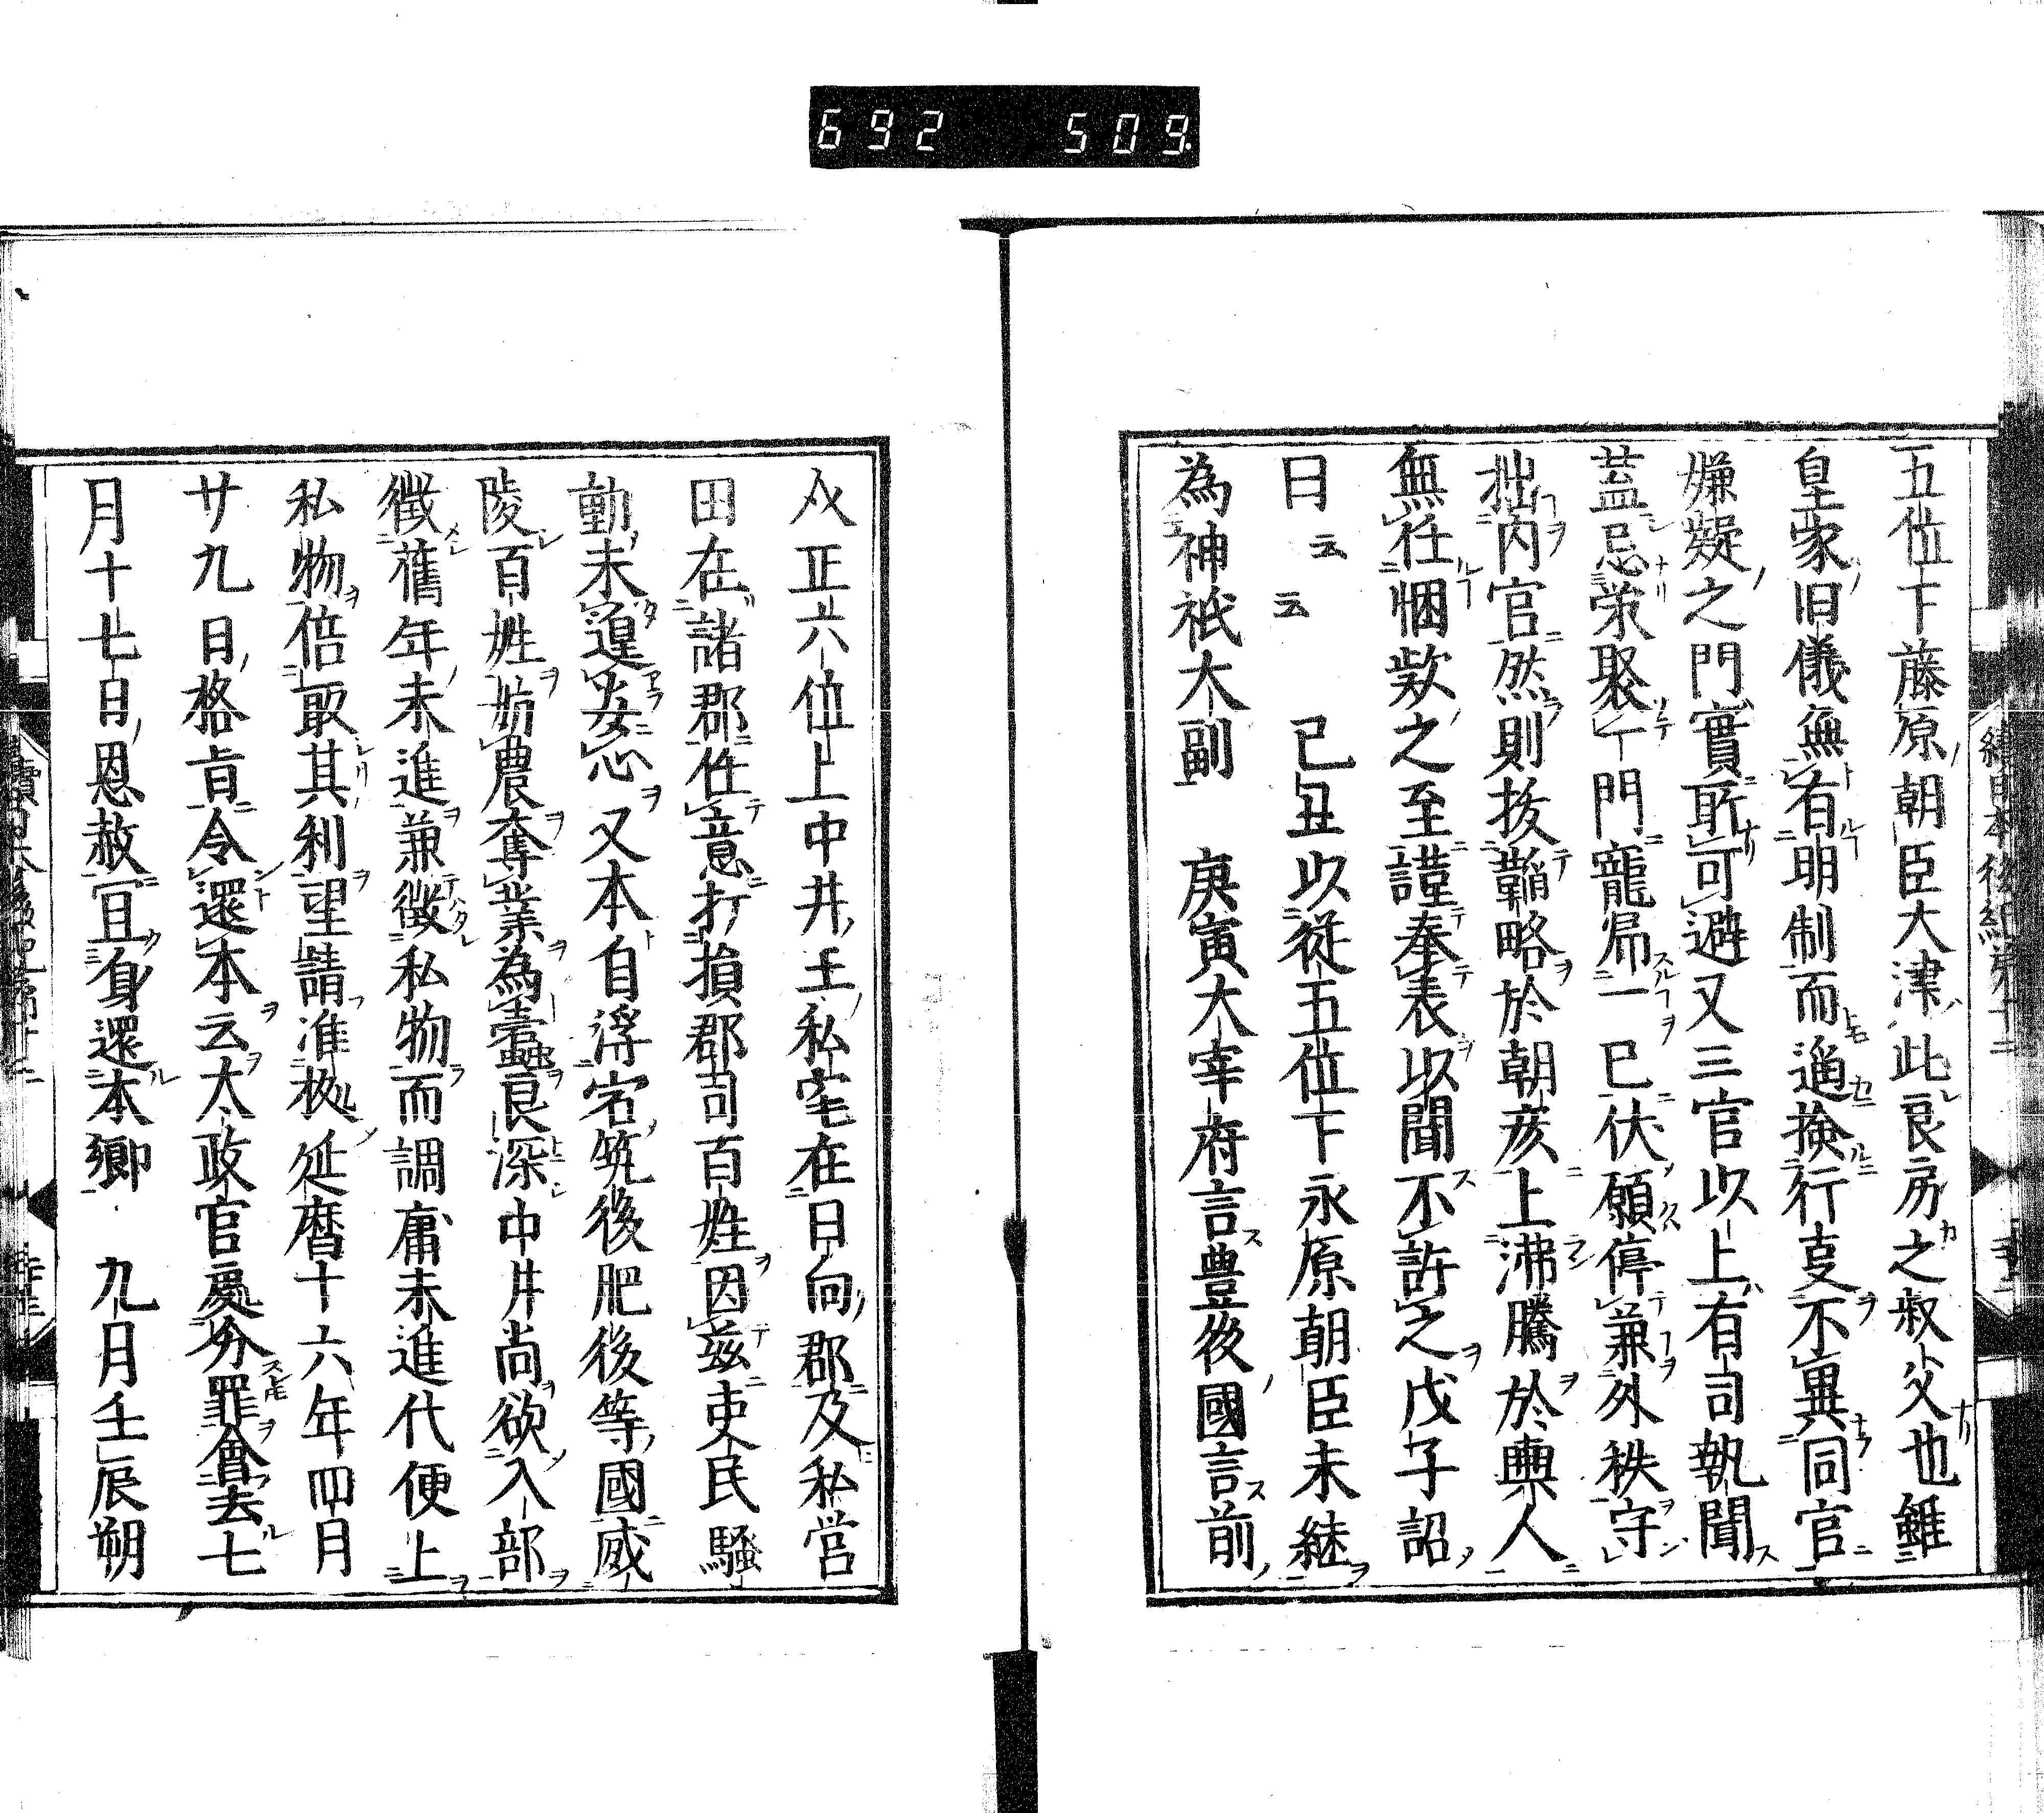 692 509
五位下藤原朝臣大津此良房之叔父也雖
皇家旧儀無有明制而適撿行㕝不異同官
嫌疑之門實敢可避又三官以上有司執聞
葢忌栄聚一門寵帰一已伏願停兼外秩守
拙内官然則拔鞱略於朝亥上沸騰於輿人
無任悃欵之至謹奉表以聞不許之戊子詔
日云云 已丑以從五位下永原朝臣未継
為神祇大副 庚寅大宰府言豊後國言前
介正六位上中井王私宅在日向郡及私営
田在諸郡任意打損郡司百姓因茲吏民騒
動未遑安心又本自浮宕筑後肥後等國威
陵百姓妨農奪業為蠹良深中井尚欲入部
徴舊年未進兼徴私物而調庸未進代便上
私物倍取其利望請准拠延暦十六年四月
廿九日格旨令還本云太政官處分罪會去七
月十七日恩赦冝身還本郷 九月壬辰朔